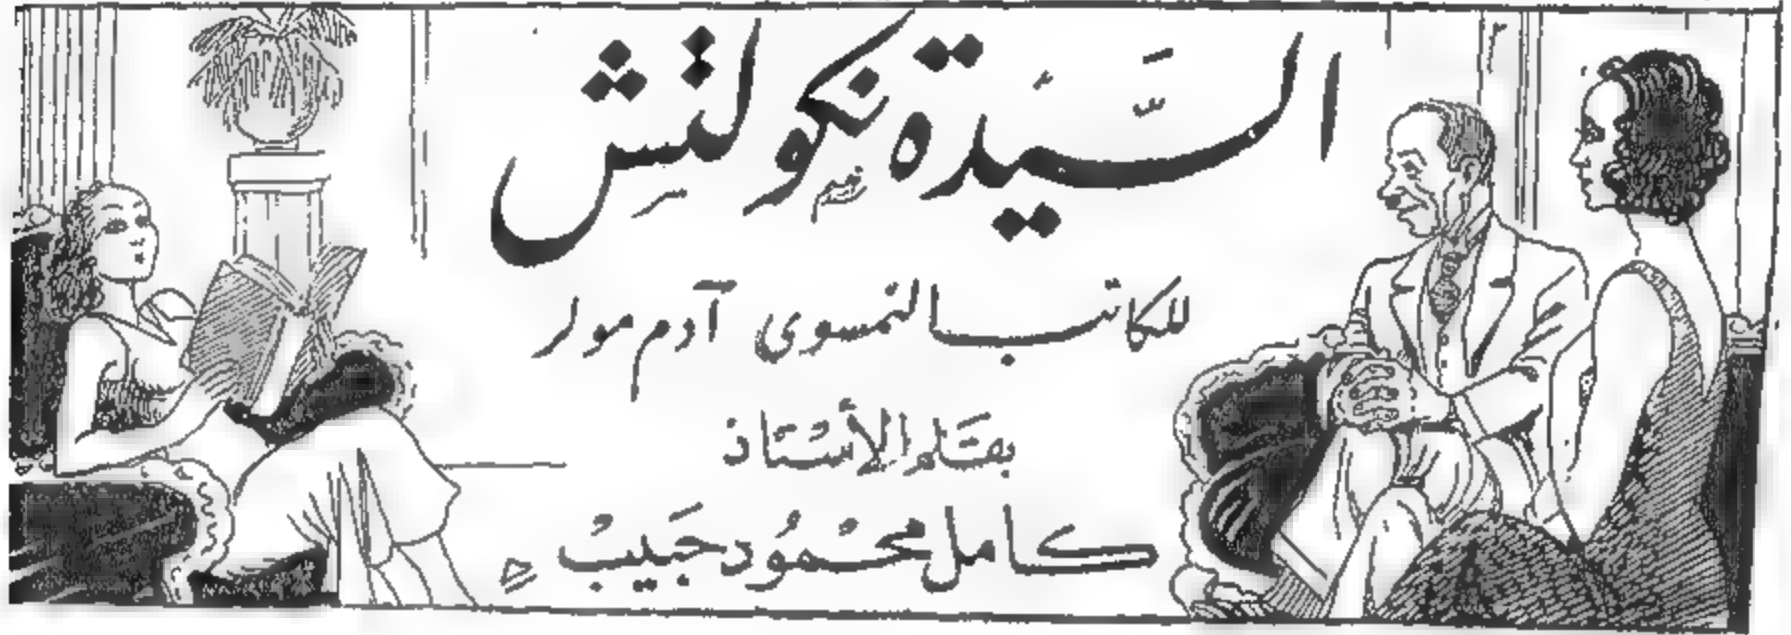 السَّيِّدة نكولتش
للكاتب النمسوى آدم مولر
بقلم الأستاذ
كامل محمود حبيب